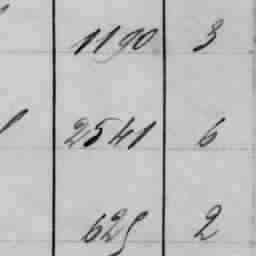 1190 3
2541 6
625 2